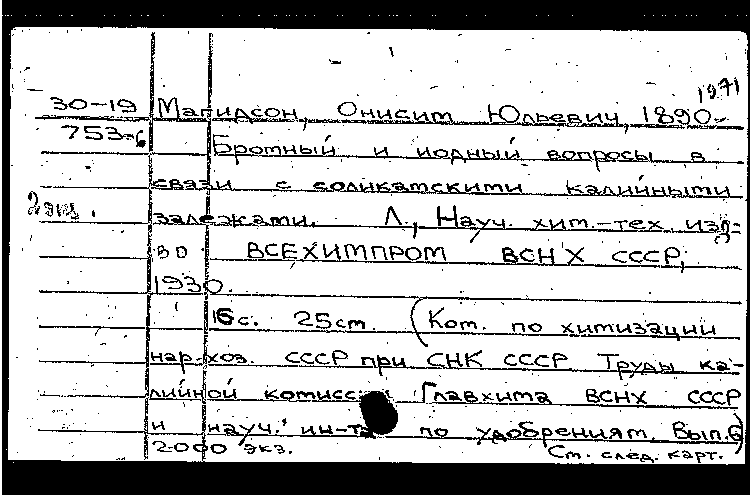 1971
30-19 Магидсон, Онисим Юльевич, 1890-
753-6 Бромный и иодный вопросы в
связи с соликамскими калийными
2 экз. залежами. Л., Науч. хим.-тех. изд-
во ВСЕХИМПРОМ ВСНХ СССР,
1930.
16с. 25cm. (Ком. по химизации
нар-хоз. СССР при СНК СССР Труды ка-
лийной комисс Главхима ВСНХ СССР
и науч. ин-та по удобрениям. Вып.6)
2000 экз. См. след. карт.